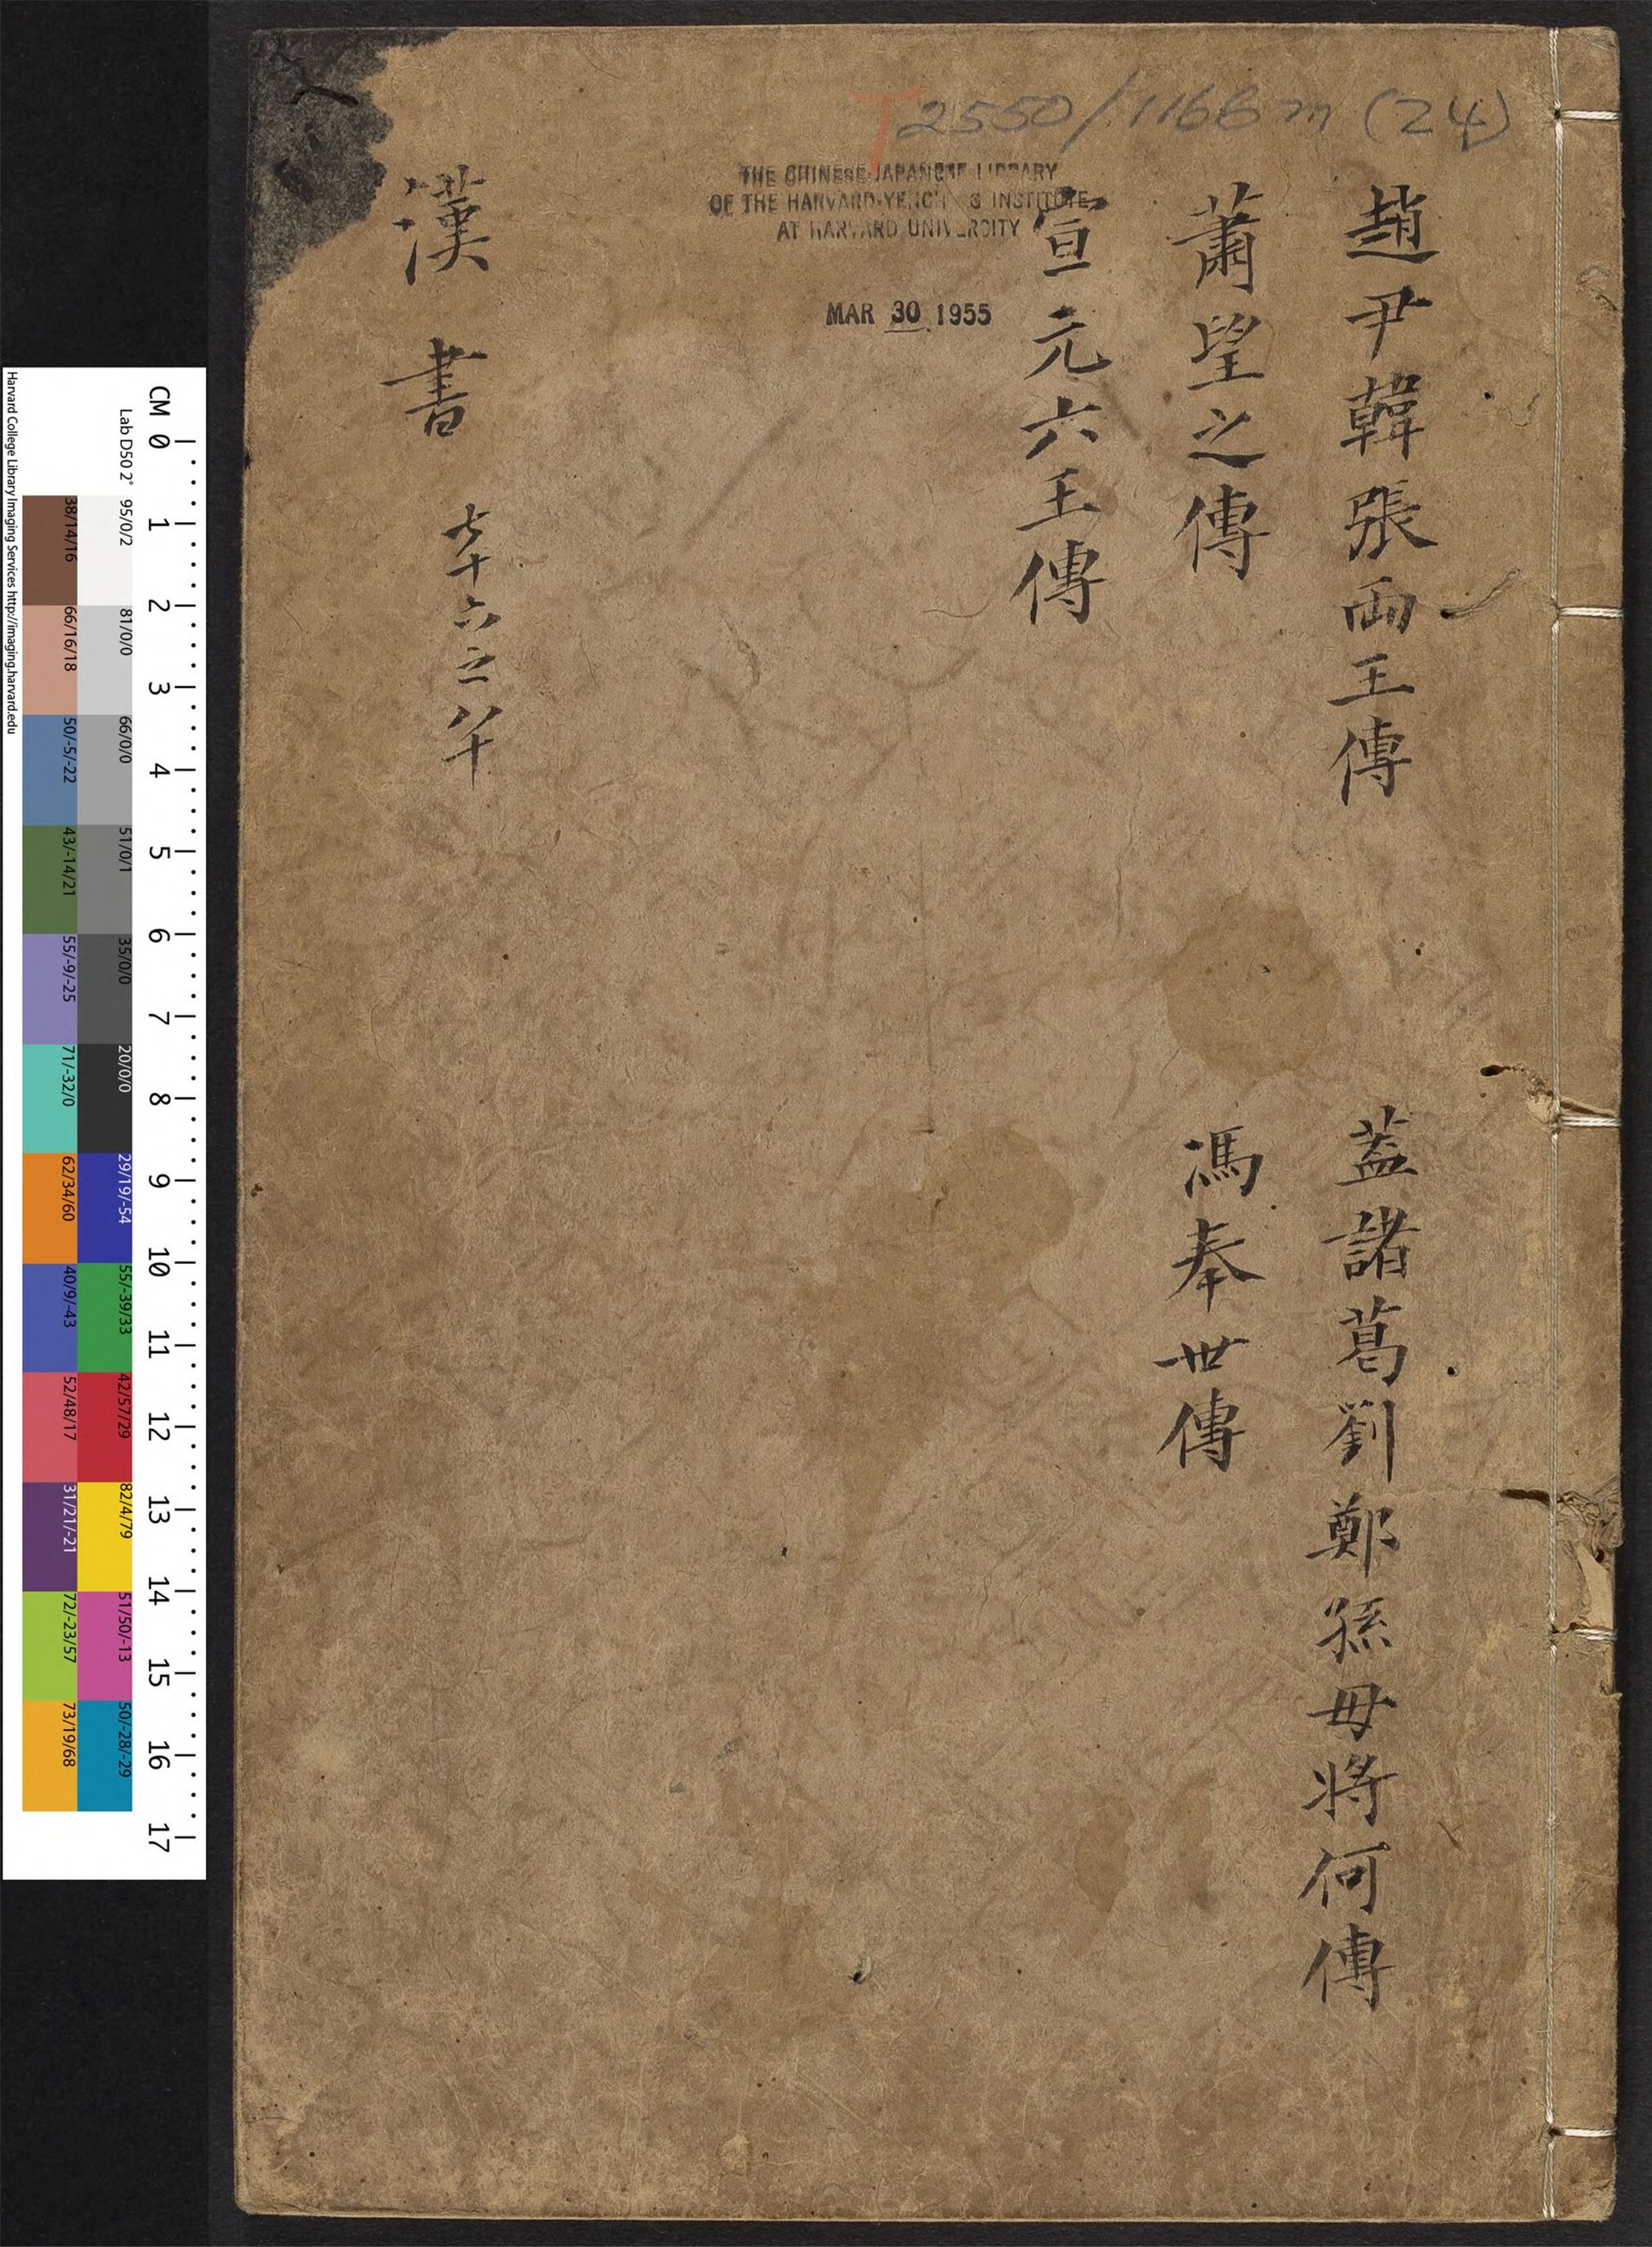 T 2550/1166m (24)
THE CHINESE-JAPANESE LIBRARY
OF THE HARVARD-YENCHING INSTITUTE
AT HARVARD UNIVERSITY
MAR 30 1955
趙尹韓張兩王傳
蓋諸葛劉鄭孫毋將何傳
蕭望之傳
馮奉世傳
宣元六王傳
漢書
七十六之八十
CM 0 1 2 3 4 5 6 7 8 9 10 11 12 13 14 15 16 17
Lab D50 2° 95/0/2 81/0/0 66/0/0 51/0/1 35/0/0 20/0/0 29/19/-54 55/-39/33 42/57/29 82/4/79 51/50/-13 50/-28/-29
38/14/16 66/16/18 50/-5/-22 43/-14/21 55/-9/-25 71/-32/0 62/34/60 40/9/-43 52/48/17 31/21/-21 72/-23/57 73/19/68
Harvard College Library Imaging Services http://imaging.harvard.edu